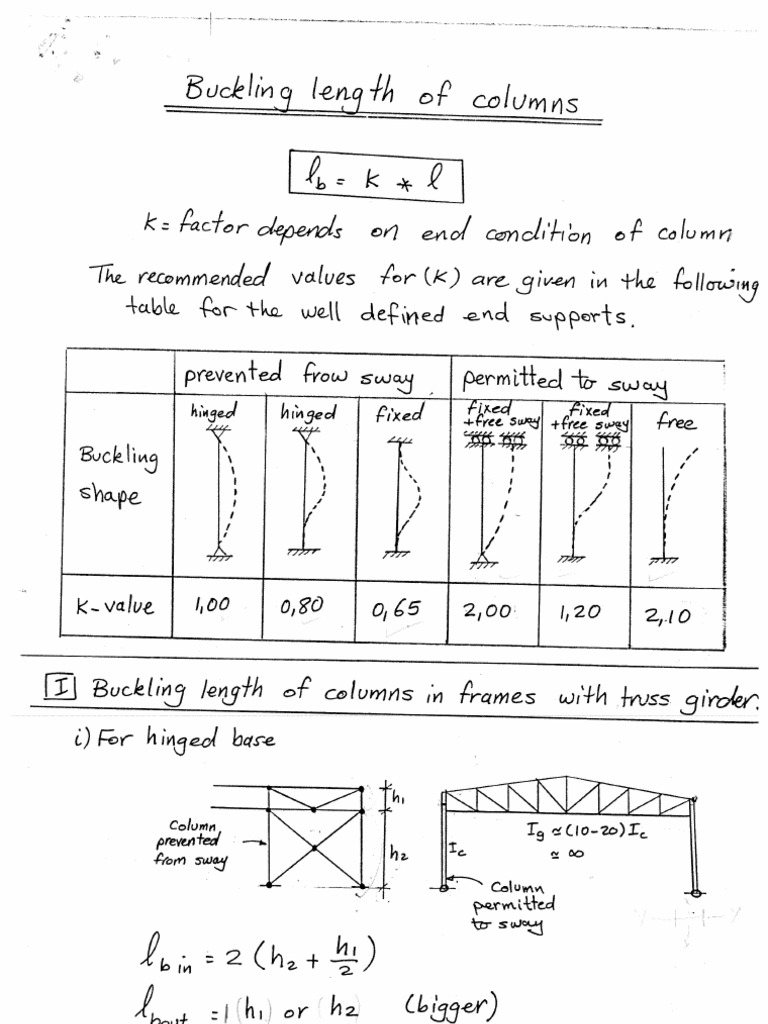 Buckling length of columns
l_b = k * l
k = factor depends on end condition of column
The recommended values for (k) are given in the following
table for the well defined end supports.
prevented frow sway
permitted to sway
Buckling
shape
hinged
hinged
fixed
fixed
+free sway
fixed
+free sway
free
k-value
1,00
0,80
0,65
2,00
1,20
2,10
I Buckling length of columns in frames with truss girder.
i) For hinged base
Column
prevented
from sway
h1
h2
Ig ≃ (10-20) Ic
≃ ∞
Ic
Column
permitted
to sway
l_b in = 2 (h2 + h1/2)
l_b out = 1 (h1) or (h2) (bigger)